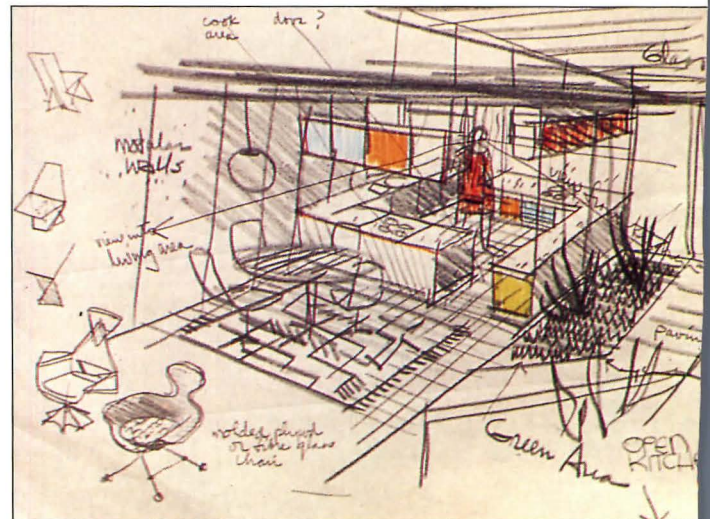 cook
area
door ?
Glass
modular
Walls
view into
living area
view
molded plywd
or fibre glass
chair
Green Area
OPEN
KITCH